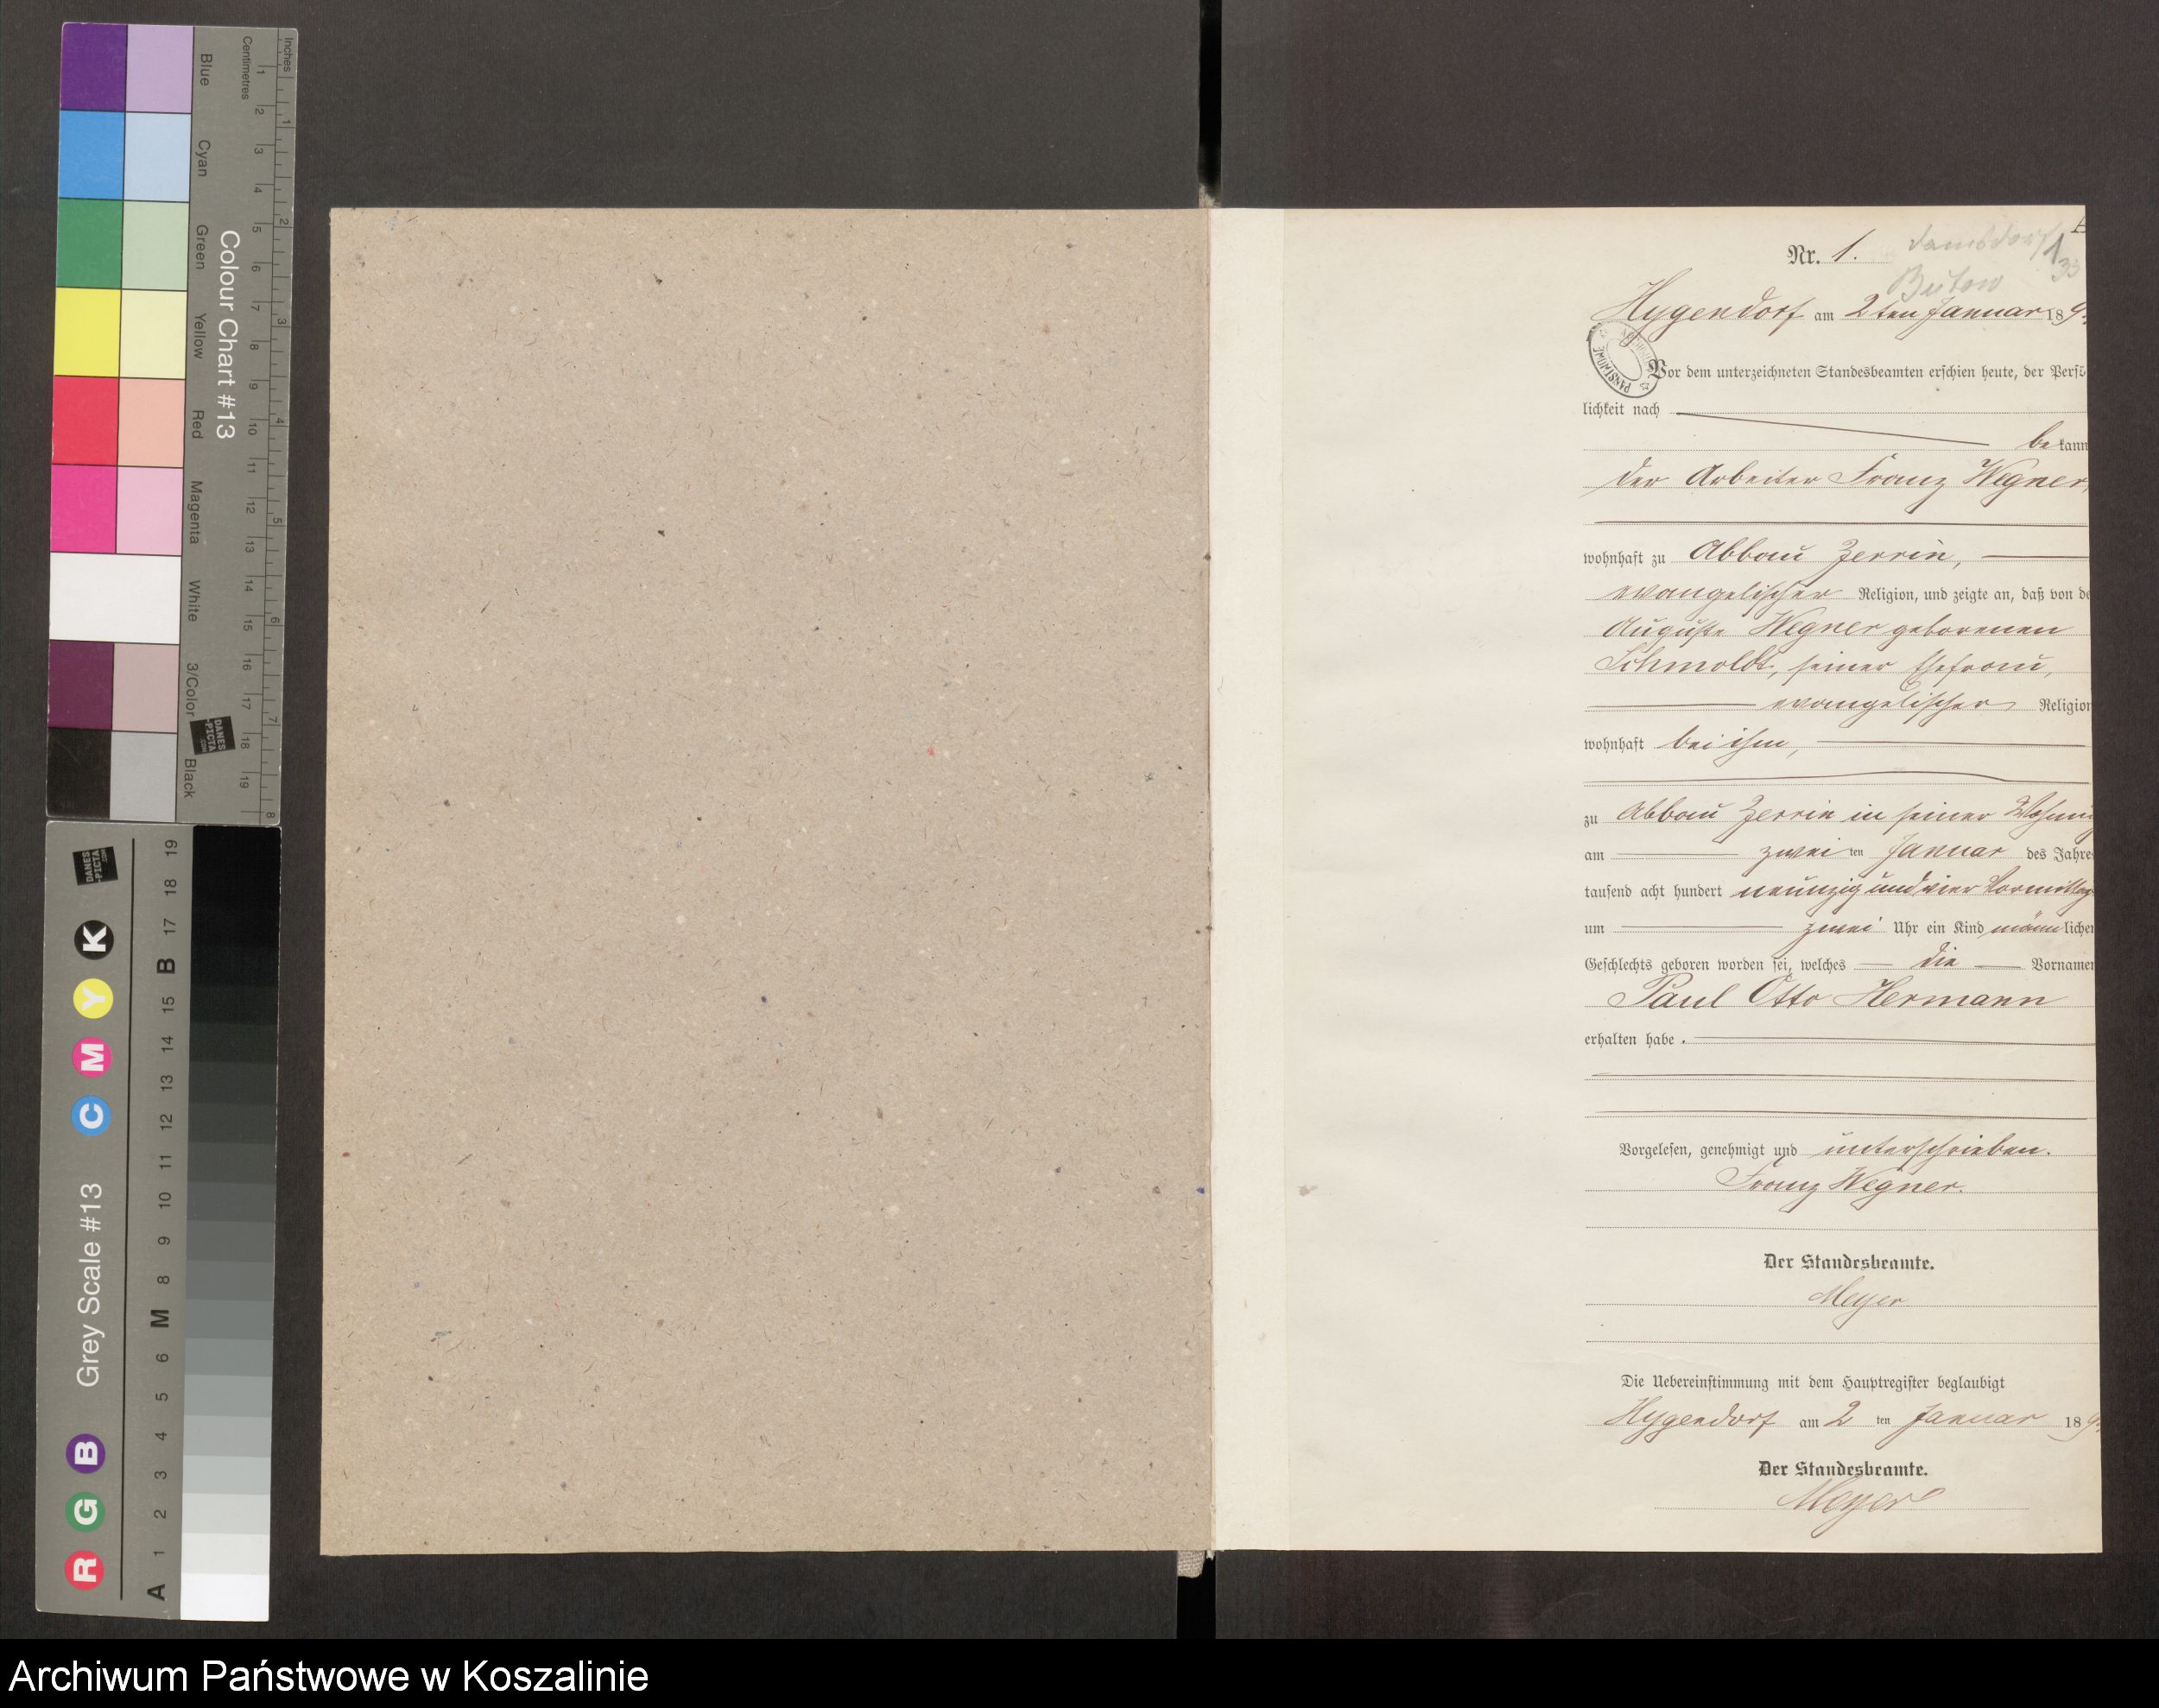 Inches
Centimetres
Colour Chart #13
Blue
Cyan
Green
Yellow
Red
Magenta
White
3/Color
Black
1 2 3 4 5 6 7 8 9 10 11 12 13 14 15 16 17 18 19
1 2 3 4 5 6 7 8
DANES
-PICTA
.COM
DANES
-PICTA
.COM
R G B Grey Scale #13 C M Y K
A 1 2 3 4 5 6 M 8 9 10 11 12 13 14 15 B 17 18 19
A
Nr. 1. Damsdorf 1
33
Bütow
Hygendorf am 2ten Januar 189
Vor dem unterzeichneten Standesbeamten erschien heute, der Persö
lichkeit nach
be kann
der Arbeiter Franz Wegner,
wohnhaft zu Abbau Zerrin,
evangelischer Religion, und zeigte an, daß von de
Auguste Wegner geborenen
Schmoldt, seiner Ehefrau,
evangelischer Religion
wohnhaft bei ihm,
zu Abbau Zerrin in seiner Wohnung
am zwei ten Januar des Jahre
tausend acht hundert neunzig und vier Vormittag
um zwei Uhr ein Kind männlichen
Geschlechts geboren worden sei, welches die Vornamen
Paul Otto Hermann
erhalten habe.
Vorgelesen, genehmigt und unterschrieben.
Franz Wegner.
Der Standesbeamte.
Meyer
Die Uebereinstimmung mit dem Hauptregister beglaubigt
Hygendorf am 2 ten Januar 189
Der Standesbeamte.
Meyer
Archiwum Państwowe w Koszalinie